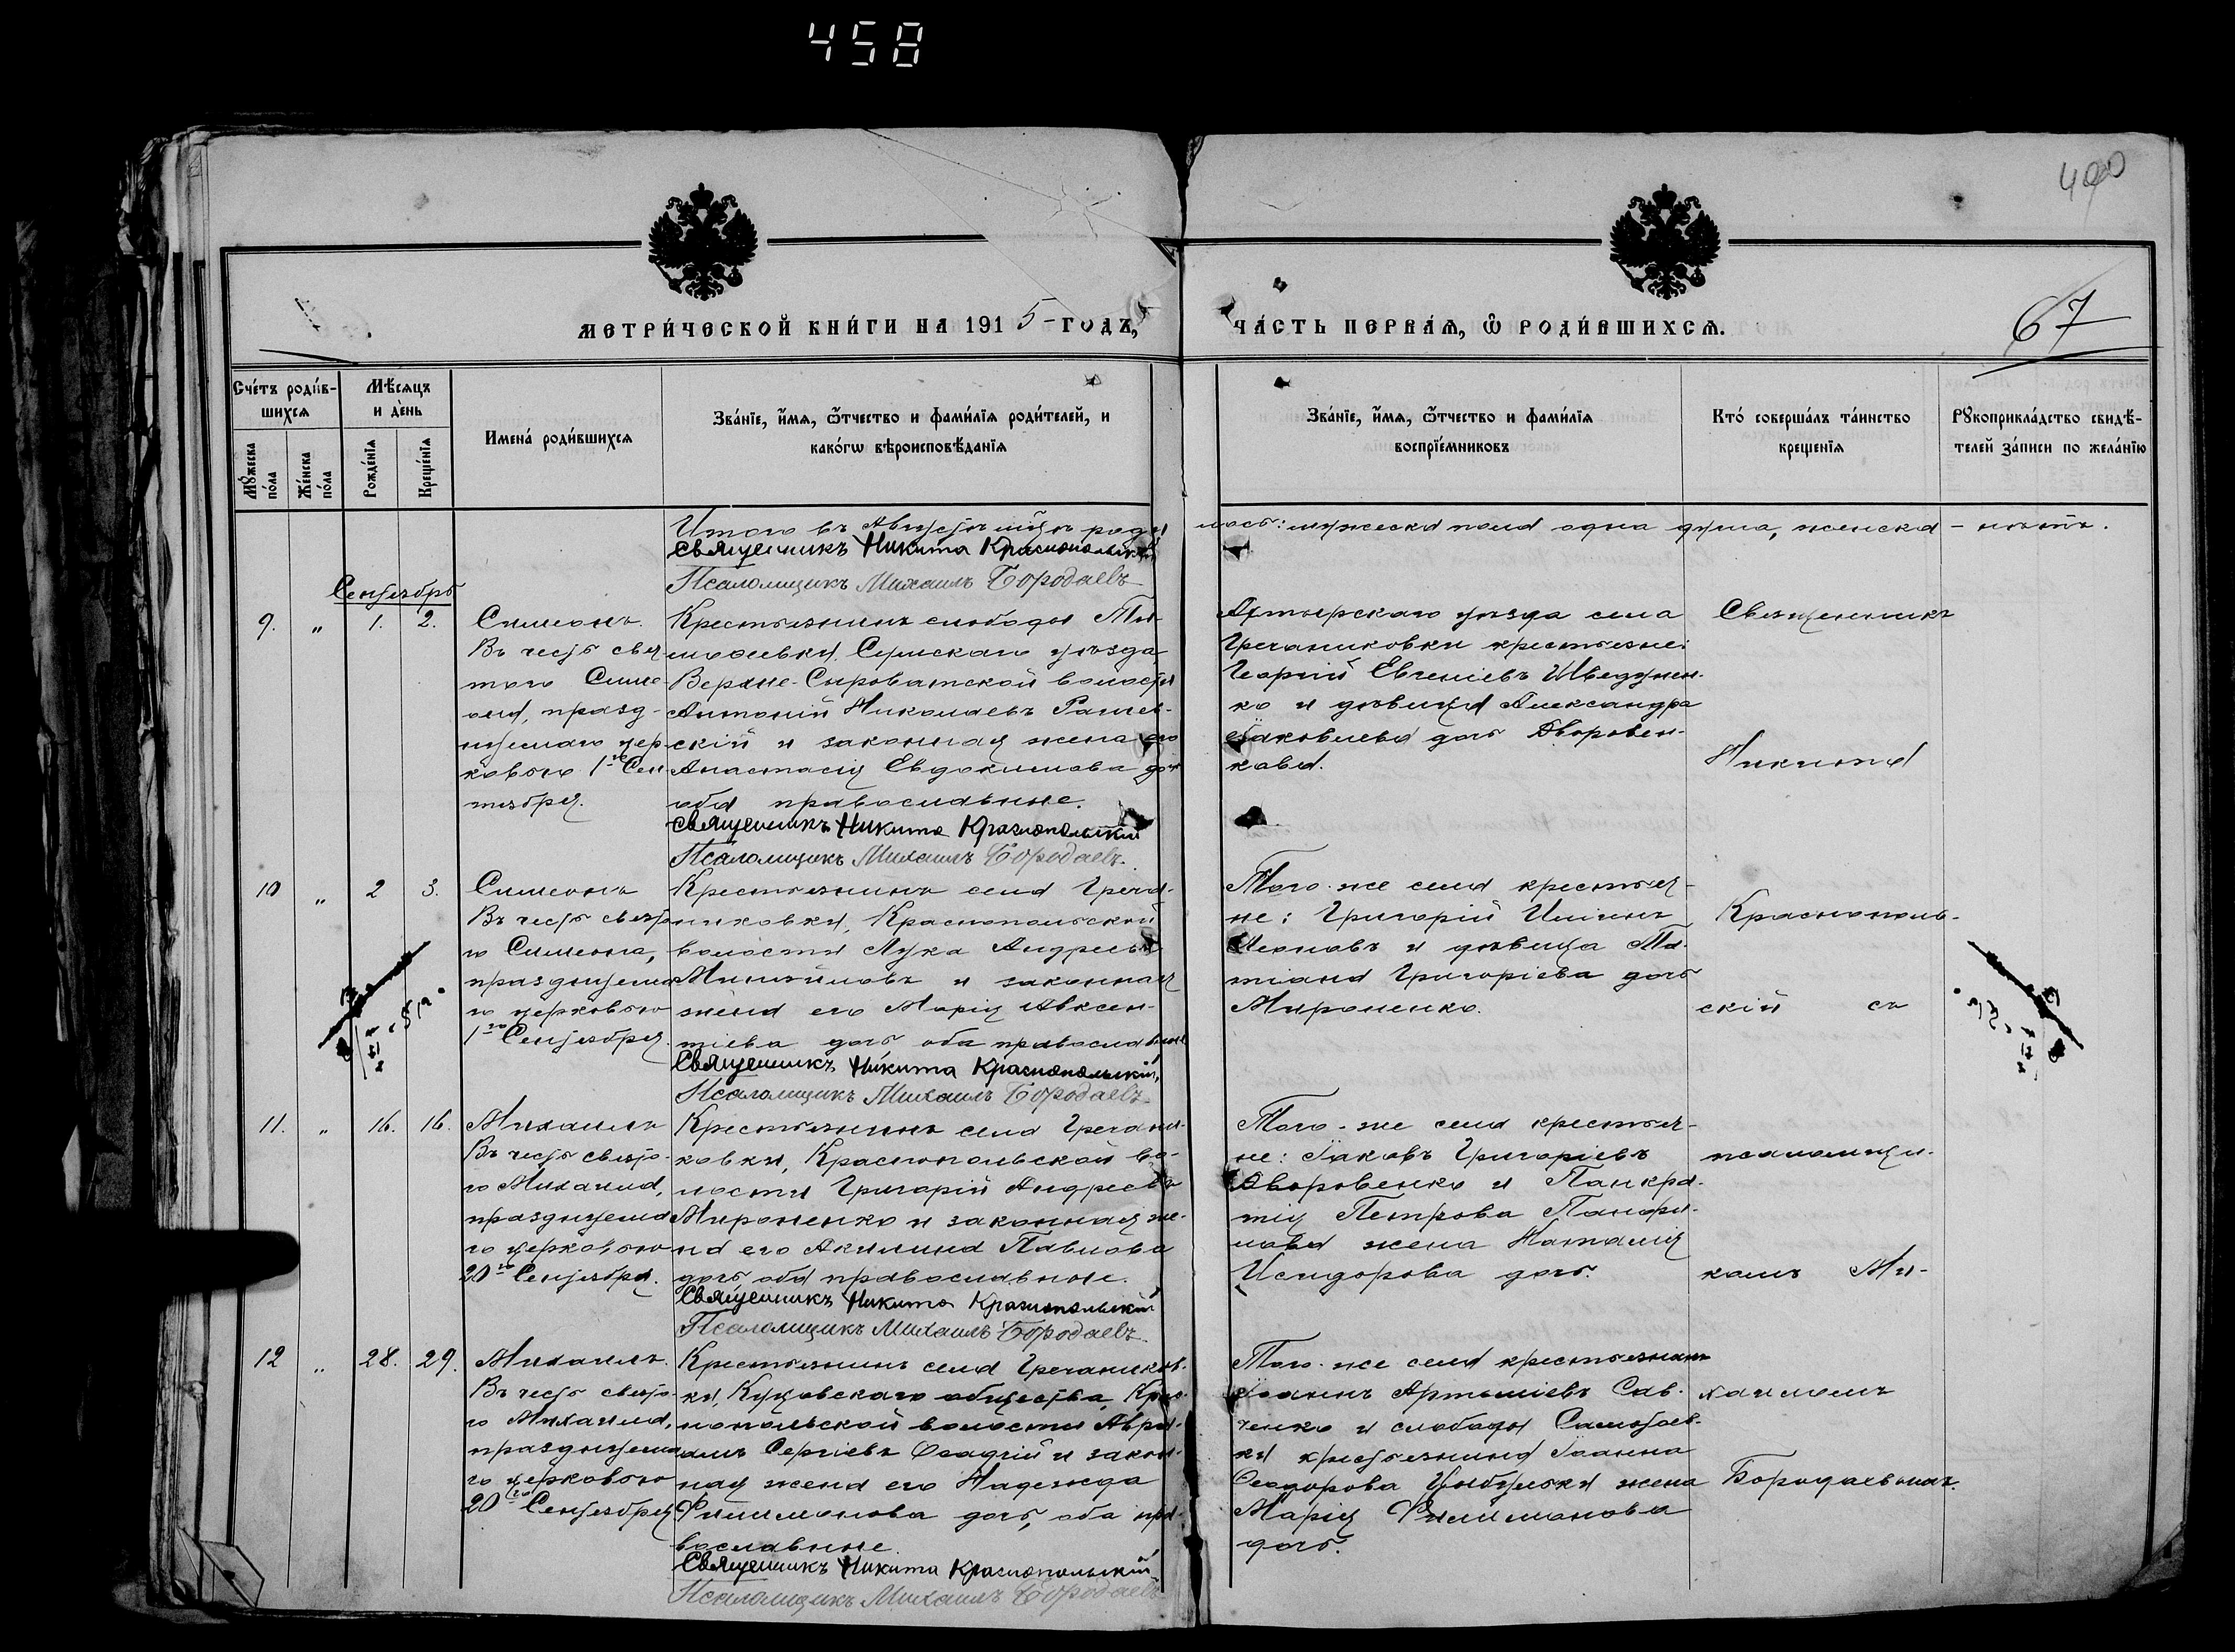 458
490
67
МЕТРИ́ЧЕСКОЙ КНИ́ГИ НА 1915 ГОДЪ,
ЧА́СТЬ ПЕ́РВАЯ, Ѡ РОДИ́ВШИХСЯ.
Сче́тъ роди́вшихся
Мꙋ́жеска по́ла
Же́нска по́ла
Мѣ́сяцъ и де́нь
Рожде́нїя
Креще́нїя
Имена́ роди́вшихся
Зва́нїе, и҆́мя, ѻ҆́тчество и фами́лїя роди́телей, и
како́гѡ вѣроисповѣ́данїя
Зва́нїе, и҆́мя, ѻ҆́тчество и фами́лїя
воспрїе́мниковъ
Кто́ соверша́лъ та́инство
креще́нїя
Рꙋкоприкла́дство свидѣ́-
телей за́писи по жела́нїю
Итого въ Августѣ мѣсяцѣ роди
лось: мужеска пола одна душа, женска - нѣтъ.
Священникъ Никита Краснопольскій
Псаломщикъ Михаилъ Бородаевъ
Сентябрь
9. " 1. 2.
Симеонъ.
Въ честь свя-
того Симе-
она, празд-
нуемаго цер
ковью 1го Сен
тября.
Крестьянинъ слободы Ти-
мофеевки, Сумскаго уѣзда
Верхне-Сыроватской волости
Антоній Николаевъ Рашев-
скій и законная жена его
Анастасія Евдокимова дочь
оба православные.
Священникъ Никита Краснопольскій
Псаломщикъ Михаилъ Бородаевъ.
Ахтырскаго уѣзда села
Гречаниковки крестьяне:
Георгій Евгеніевъ
ко и дѣвица Александра
Іаковлева дочь Дворовен-
кова.
Священникъ
Никита
10 " 2 3.
Симеонъ
Въ честь свято
го Симеона,
празднуема
го церковью
1го Сентября.
Крестьянинъ села Греча-
никовки, Краснопольской
волости Лука Андреевъ
и законная
жена его Марія Авксен-
тіева дочь оба православные
Священникъ Никита Краснопольскій
Псаломщикъ Михаилъ Бородаевъ
Того-же села крестья-
не: Григорій
Леоновъ и дѣвица Та-
тіана Григоріева дочь
Мироненко.
Краснополь-
скій съ
11. " 16. 16.
Михаилъ
Въ честь свято-
го Михаила,
празднуема
го церковью
20го Сентября.
Крестьянинъ села Гречани-
ковки, Краснопольской во-
лости Григорій Андреевъ
Мироненко и законная же-
на его Акилина Павлова
дочь, оба православные.
Священникъ Никита Краснопольскій
Псаломщикъ Михаилъ Бородаевъ.
Того-же села крестья-
не: Іаковъ Григоріевъ
Дворовенко и Панкра-
тія Петрова
жена Наталія
Исидорова дочь.
псаломщи-
комъ Ми-
12 " 28. 29.
Михаилъ.
Въ честь свято-
го Михаила,
празднуема
го церковью
20го Сентября
Крестьянинъ села Гречаников-
ки, общества, Крас-
нопольской волости Авра-
амъ Сергіевъ Осадчій и закон-
ная жена его Надежда
Филимонова дочь, оба пра-
вославные.
Священникъ Никита Краснопольскій
Псаломщикъ Михаилъ Бородаевъ
Того-же села крестьянинъ
Іоаннъ Артеміевъ Сав-
ченко и слободы
ки крестьянина Іоанна
Ѳеодорова жена
Марія Филимонова
дочь.
хаиломъ
Бородаевымъ.